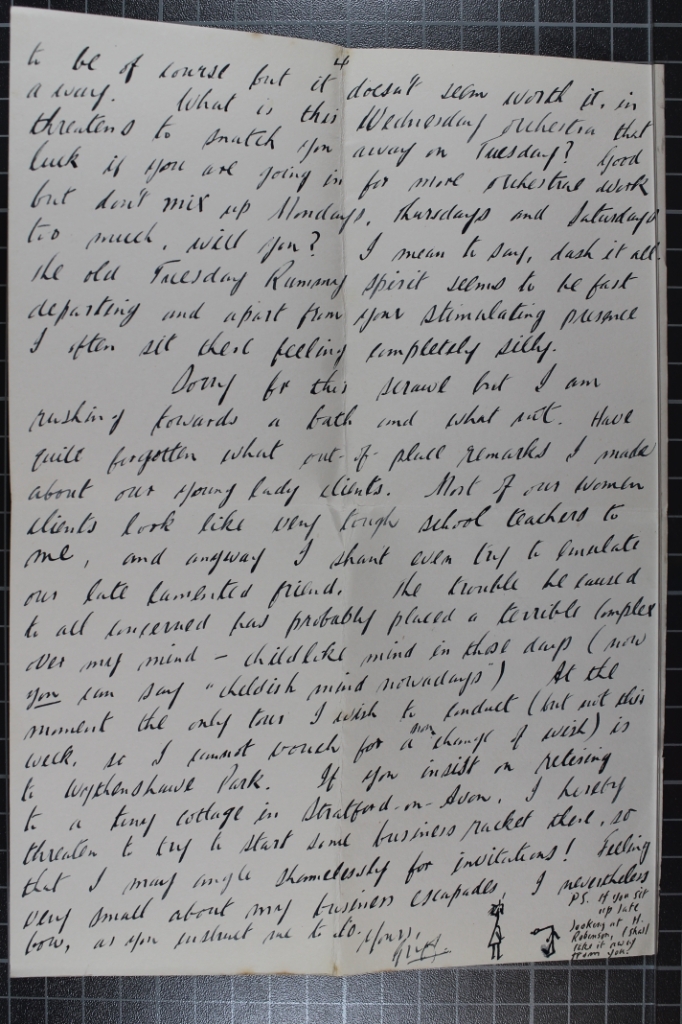 4
to be of course but it doesn't seem worth it, in
a way. What is this Wednesday orchestra that
threatens to snatch you away on Tuesday? Good
luck if you are going in for more orchestral work
but don't mix up Mondays, Thursdays and Saturdays
too much, will you? I mean to say, dash it all.
The old Tuesday Rummy spirit seems to be fast
departing and apart from your stimulating presence
I often sit there feeling completely silly.
Sorry for this scrawl but I am
rushing towards a bath and what not. Have
quite forgotten what out-of-place remarks I made
about our young lady clients. Most of our women
clients look like very tough school teachers to
me, and anyway I shant even try to emulate
our late lamented friend. The trouble he caused
to all concerned has probably placed a terrible complex
over my mind – childlike mind in those days (now
you can say "childish mind nowadays") At the
moment the only tour I wish to conduct (but not this
week, so I cannot vouch for a change of wish) is
to Wythenshawe Park. If you insist on retiring
to a tiny cottage in Stratford-on-Avon, I hereby
threaten to try to start some business racket there, so
that I may angle shamelessly for invitations! Feeling
very small about my business escapades, I nevertheless
bow, as you instruct me to do. Yours,
P.S. If you sit
up late
looking at H.
Robinson, I shall
take it away
from you!